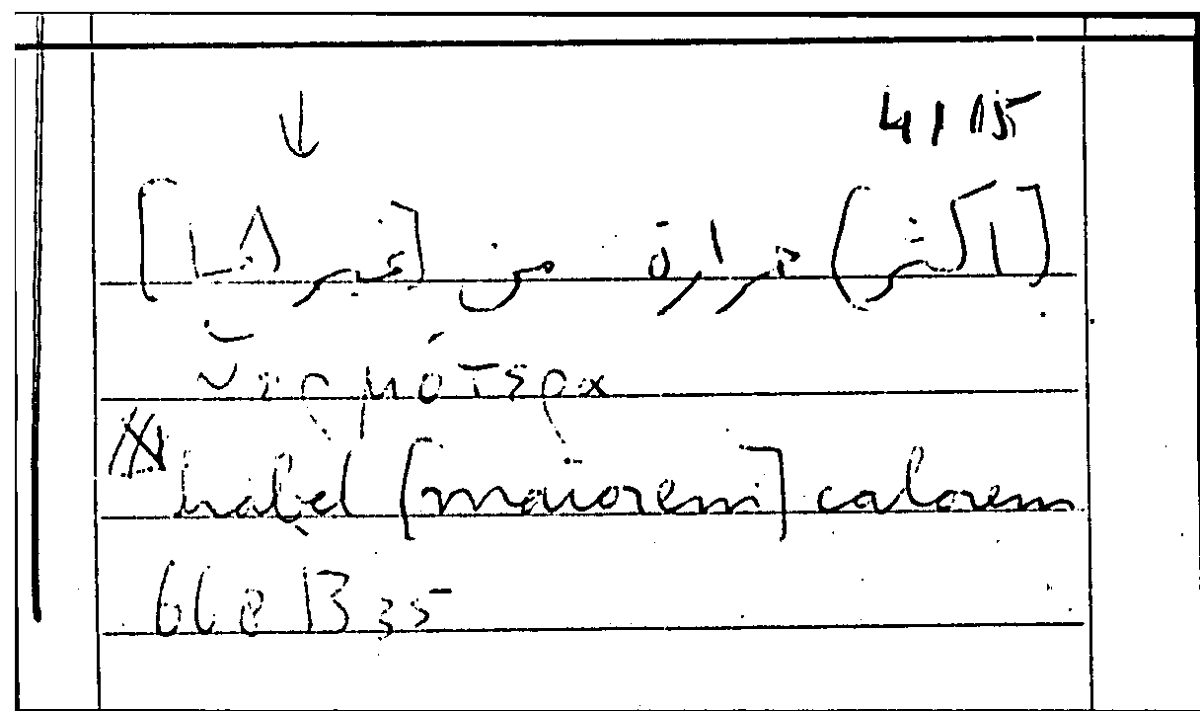 ↓ 41,15
[اكثر) حرارة من [غيرها]
θερμότερα
habet [maiorem] calorem
668 B 35